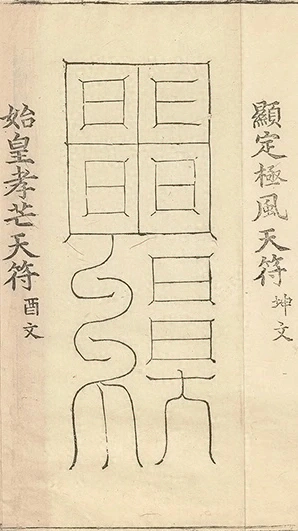 顯定極風天符坤文
始皇孝芒天符酉文